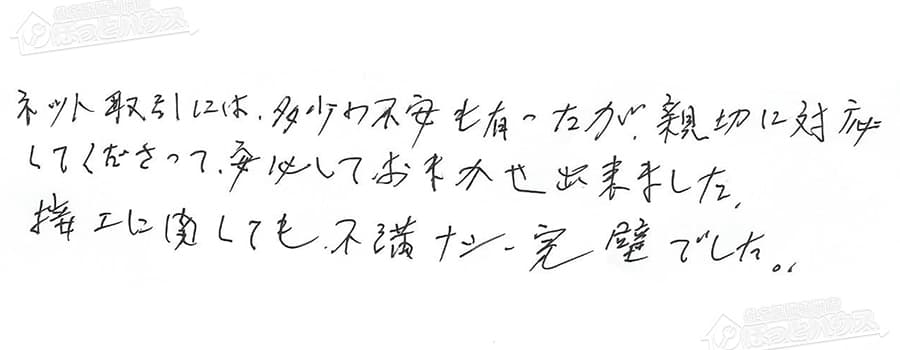 生活堂関連事業
ほっとハウス
ネット取引には、多少の不安も有ったが、親切に対応
してくださって、安心しておまかせ出来ました。
接工に関しても、不満ナシー完璧でした。
ほっとハウス